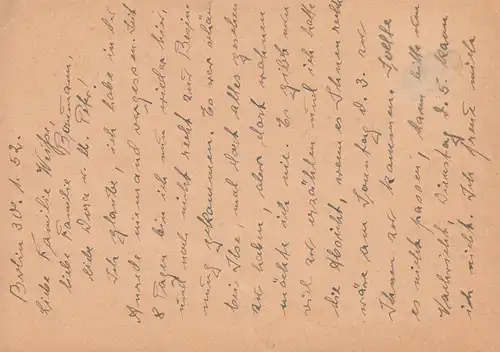 Berlin 30.1.52.
Liebe Familie Weiße,
liebe Familie Baumann,
liebe Dora u. Peter!
Ich glaube, ich habe in der
Hurde niemand vergessen. Seit
8 Tagen bin ich nun wieder hier,
und noch nicht recht zur Besin-
nung gekommen. Es war schön
bei Ilse, mal dort alles gesehen
zu haben, aber dort wohnen
möchte ich nie. Es gibt nun
viel zu erzählen und ich hatte
die Absicht, wenn es Ihnen recht
wäre am Sonntag d. 3. zu
Ihnen zu kommen. Sollte
es nicht passen, kann bitte
Nachricht Dienstag d. 5. kann
ich nicht. Ich freue mich